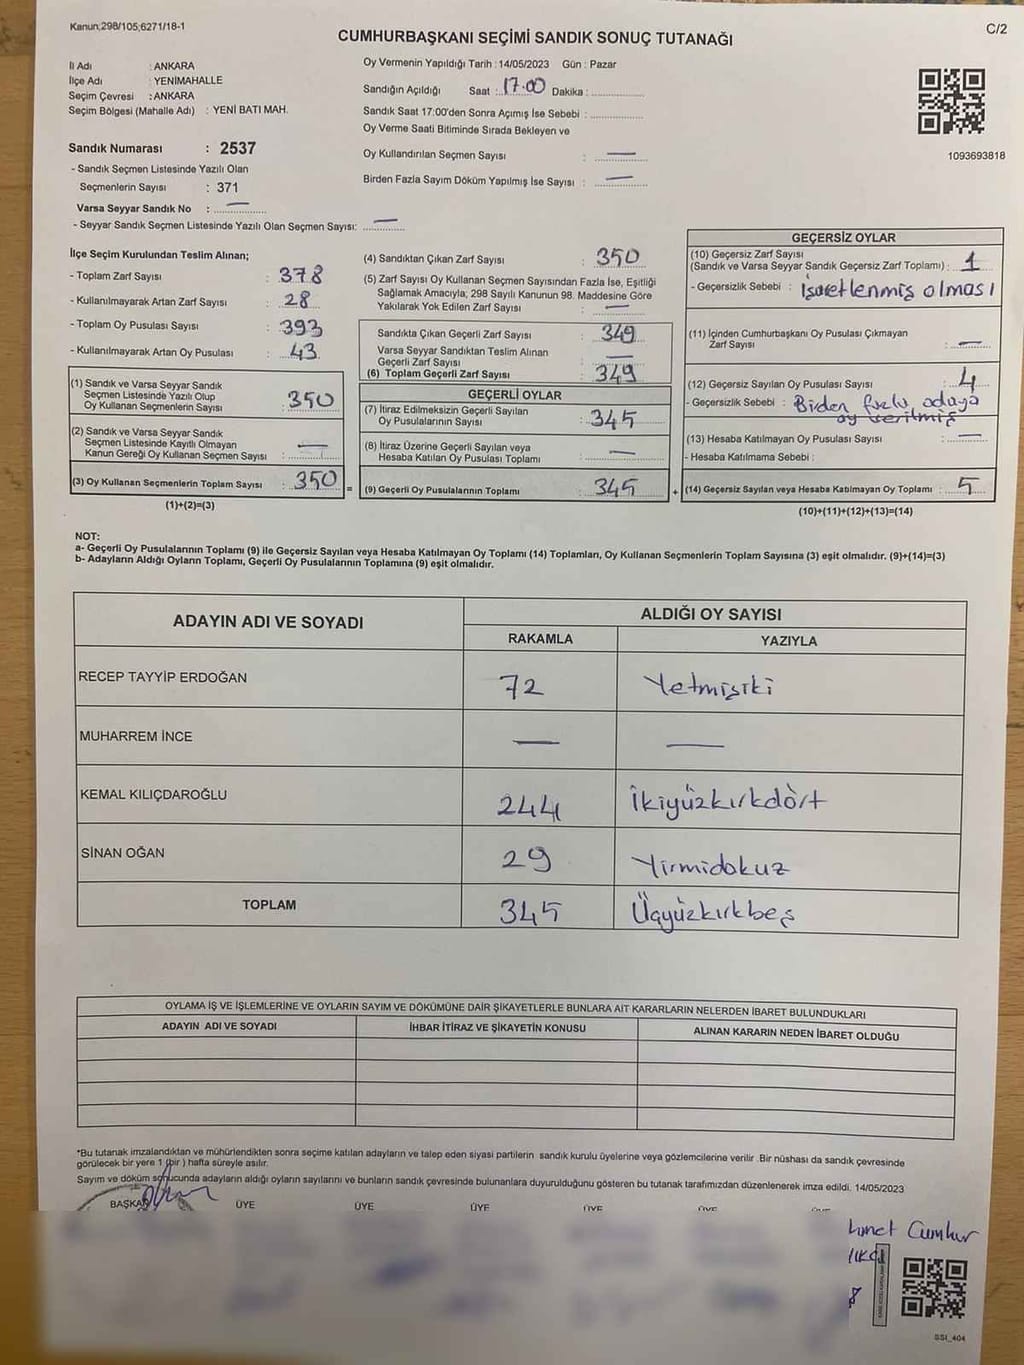 Kanun;298/105;6271/18-1
C/2
CUMHURBAŞKANI SEÇİMİ SANDIK SONUÇ TUTANAĞI
İl Adı : ANKARA
İlçe Adı : YENİMAHALLE
Seçim Çevresi : ANKARA
Seçim Bölgesi (Mahalle Adı) : YENİ BATI MAH.
Sandık Numarası : 2537
- Sandık Seçmen Listesinde Yazılı Olan
Seçmenlerin Sayısı : 371
Varsa Seyyar Sandık No : —
- Seyyar Sandık Seçmen Listesinde Yazılı Olan Seçmen Sayısı: —
Oy Vermenin Yapıldığı Tarih : 14/05/2023 Gün : Pazar
Sandığın Açıldığı Saat : 17.00 Dakika :
Sandık Saat 17:00'den Sonra Açımış İse Sebebi :
Oy Verme Saati Bitiminde Sırada Bekleyen ve
Oy Kullandırılan Seçmen Sayısı : —
Birden Fazla Sayım Döküm Yapılmış İse Sayısı : —
1093693818
İlçe Seçim Kurulundan Teslim Alınan;
- Toplam Zarf Sayısı : 378
- Kullanılmayarak Artan Zarf Sayısı : 28
- Toplam Oy Pusulası Sayısı : 393
- Kullanılmayarak Artan Oy Pusulası : 43
(1) Sandık ve Varsa Seyyar Sandık
Seçmen Listesinde Yazılı Olup
Oy Kullanan Seçmenlerin Sayısı : 350
(2) Sandık ve Varsa Seyyar Sandık
Seçmen Listesinde Kayıtlı Olmayan
Kanun Gereği Oy Kullanan Seçmen Sayısı : —
(3) Oy Kullanan Seçmenlerin Toplam Sayısı : 350
(1)+(2)=(3)
(4) Sandıktan Çıkan Zarf Sayısı : 350
(5) Zarf Sayısı Oy Kullanan Seçmen Sayısından Fazla İse, Eşitliği
Sağlamak Amacıyla, 298 Sayılı Kanunun 98. Maddesine Göre
Yakılarak Yok Edilen Zarf Sayısı : —
Sandıkta Çıkan Geçerli Zarf Sayısı : 349
Varsa Seyyar Sandıktan Teslim Alınan
Geçerli Zarf Sayısı : —
(6) Toplam Geçerli Zarf Sayısı : 349
GEÇERLİ OYLAR
(7) İtiraz Edilmeksizin Geçerli Sayılan
Oy Pusulalarının Sayısı : 345
(8) İtiraz Üzerine Geçerli Sayılan veya
Hesaba Katılan Oy Pusulası Toplamı : —
= (9) Geçerli Oy Pusulalarının Toplamı : 345
GEÇERSİZ OYLAR
(10) Geçersiz Zarf Sayısı
(Sandık ve Varsa Seyyar Sandık Geçersiz Zarf Toplamı) : 1
- Geçersizlik Sebebi : İşaretlenmiş olması
(11) İçinden Cumhurbaşkanı Oy Pusulası Çıkmayan
Zarf Sayısı : —
(12) Geçersiz Sayılan Oy Pusulası Sayısı : 4
- Geçersizlik Sebebi : Birden fazla adaya
oy verilmiş
(13) Hesaba Katılmayan Oy Pusulası Sayısı : —
- Hesaba Katılmama Sebebi :
+ (14) Geçersiz Sayılan veya Hesaba Katılmayan Oy Toplamı : 5
(10)+(11)+(12)+(13)=(14)
NOT:
a- Geçerli Oy Pusulalarının Toplamı (9) ile Geçersiz Sayılan veya Hesaba Katılmayan Oy Toplamı (14) Toplamları, Oy Kullanan Seçmenlerin Toplam Sayısına (3) eşit olmalıdır. (9)+(14)=(3)
b- Adayların Aldığı Oyların Toplamı, Geçerli Oy Pusulalarının Toplamına (9) eşit olmalıdır.
ADAYIN ADI VE SOYADI ALDIĞI OY SAYISI
RAKAMLA YAZIYLA
RECEP TAYYİP ERDOĞAN 72 Yetmişiki
MUHARREM İNCE — —
KEMAL KILIÇDAROĞLU 244 İkiyüzkırkdört
SİNAN OĞAN 29 Yirmidokuz
TOPLAM 345 Üçyüzkırkbeş
OYLAMA İŞ VE İŞLEMLERİNE VE OYLARIN SAYIM VE DÖKÜMÜNE DAİR ŞİKAYETLERLE BUNLARA AİT KARARLARIN NELERDEN İBARET BULUNDUKLARI
ADAYIN ADI VE SOYADI İHBAR İTİRAZ VE ŞİKAYETİN KONUSU ALINAN KARARIN NEDEN İBARET OLDUĞU
*Bu tutanak imzalandıktan ve mühürlendikten sonra seçime katılan adayların ve talep eden siyasi partilerin sandık kurulu üyelerine veya gözlemcilerine verilir .Bir nüshası da sandık çevresinde
görülecek bir yere 1 (bir ) hafta süreyle asılır.
Sayım ve döküm sonucunda adayların aldığı oyların sayılarını ve bunların sandık çevresinde bulunanlara duyurulduğunu gösteren bu tutanak tarafımızdan düzenlenerek imza edildi. 14/05/2023
BAŞKAN ÜYE ÜYE ÜYE ÜYE
Cumhur
SSI_404